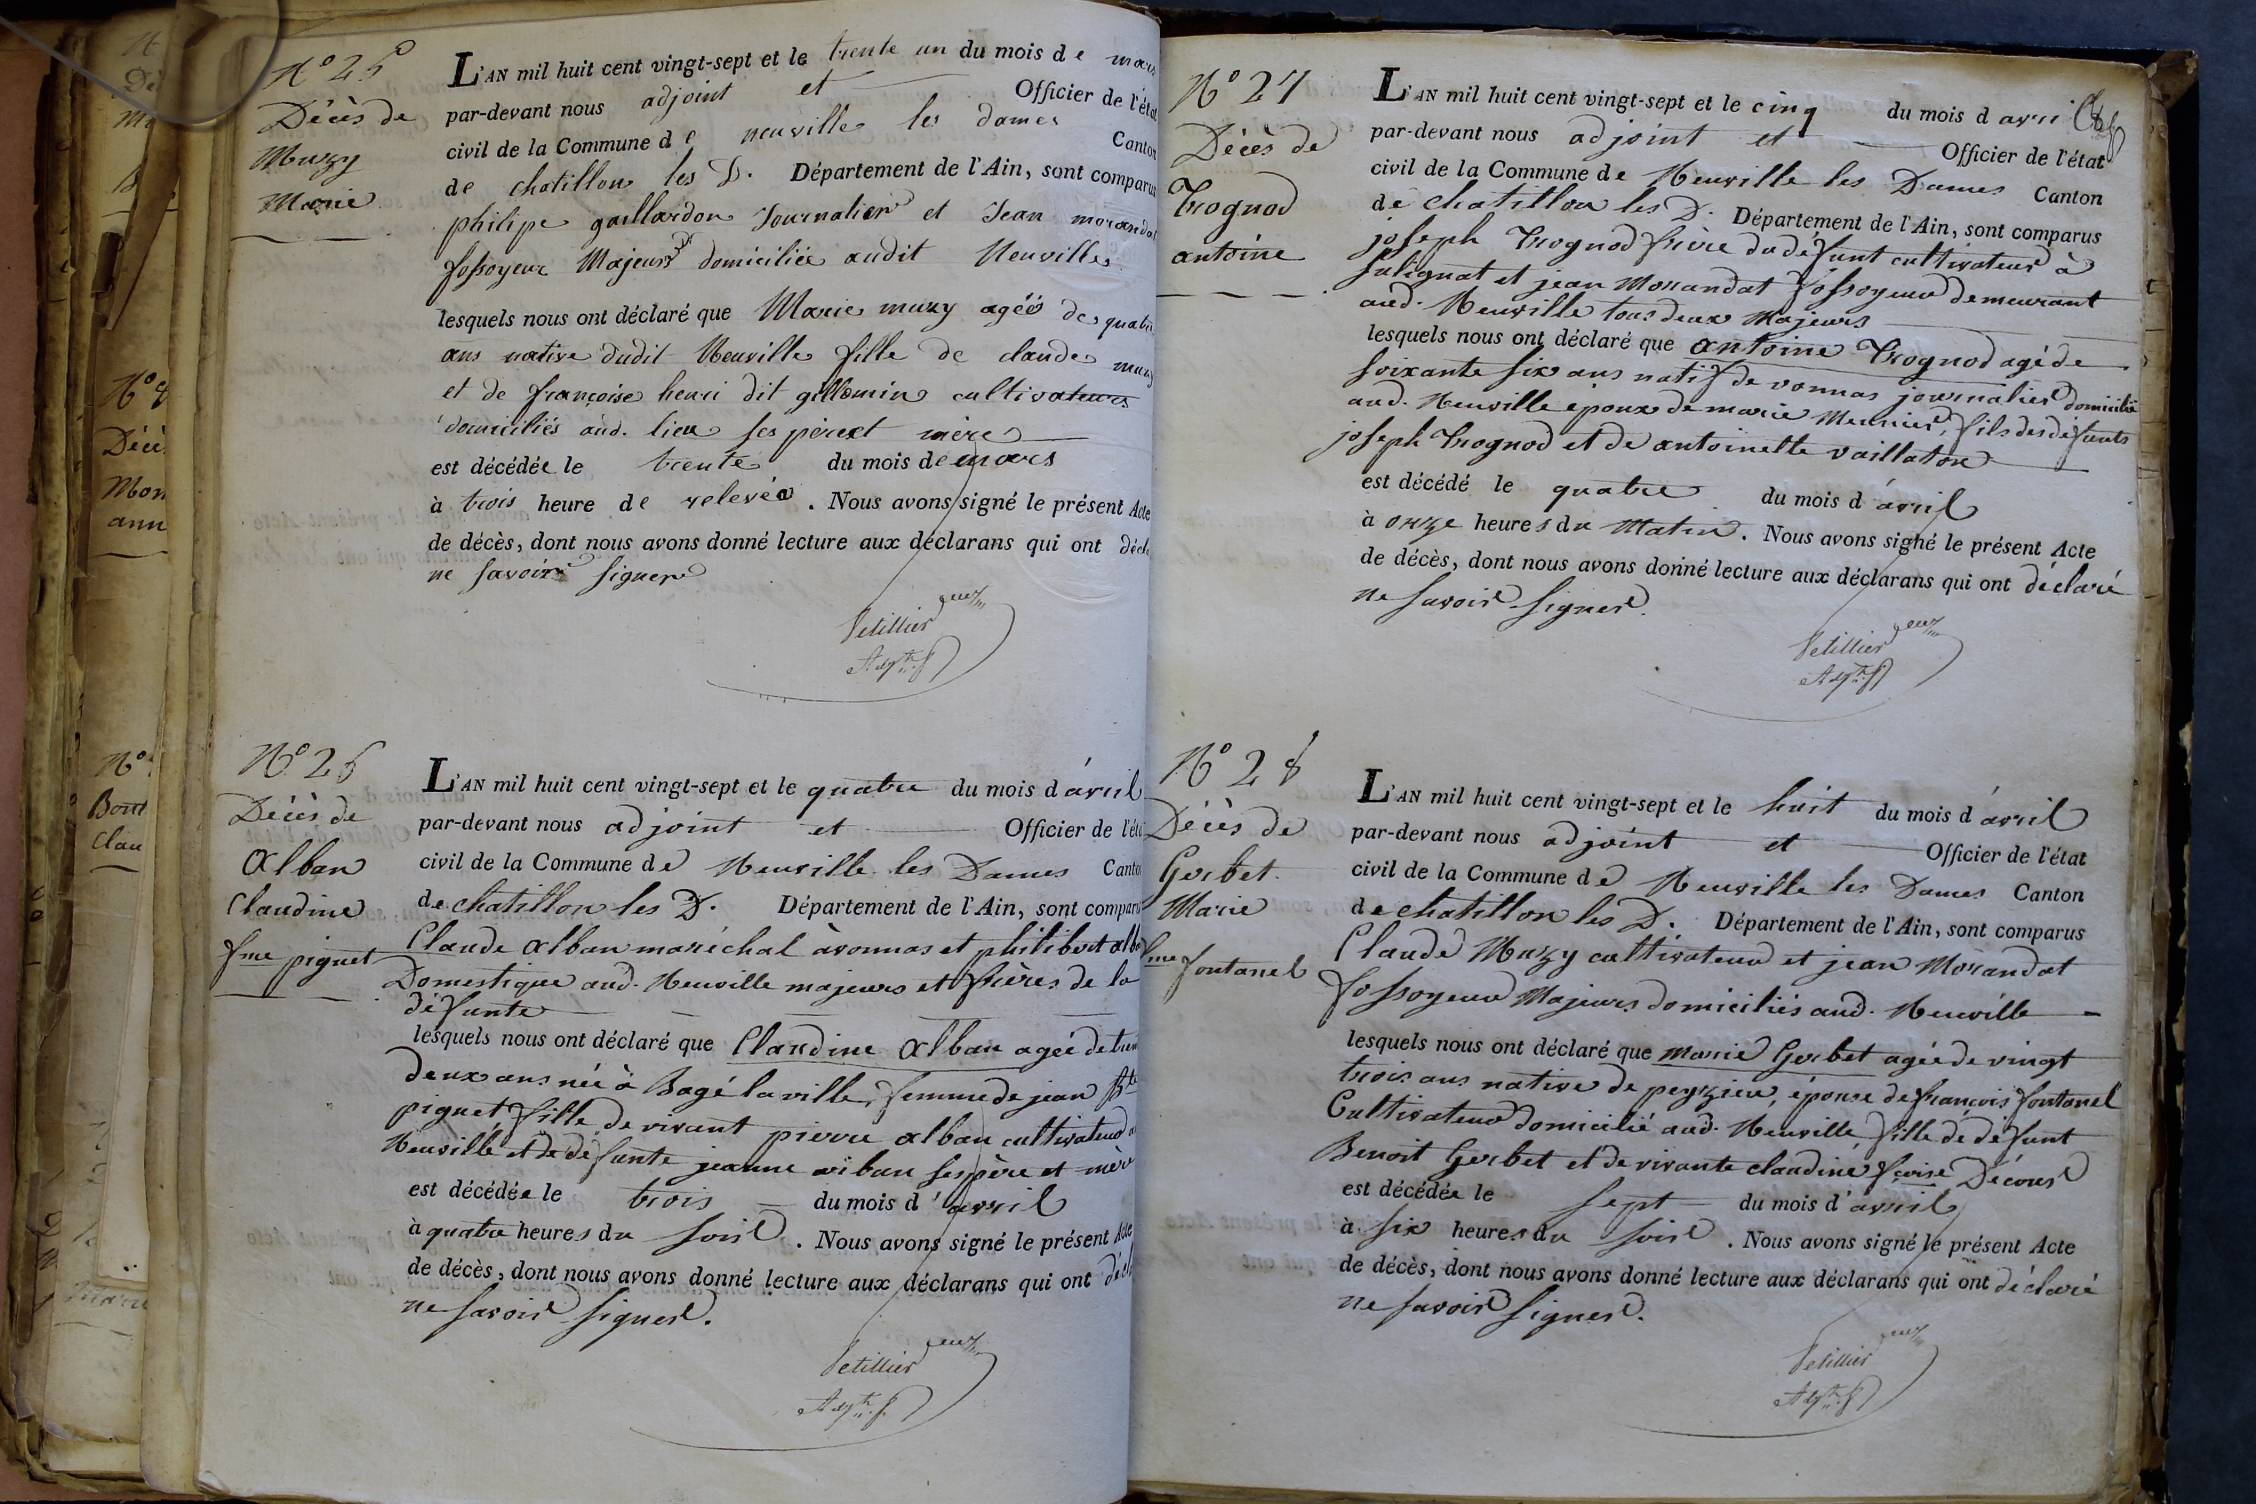 N° 25
Décès de
Muzy
Marie
L'AN mil huit cent vingt-sept et le trente un du mois de mars
par-devant nous adjoint et Officier de l'état
civil de la Commune de neuville les dames Canton
de chatillon les D. Département de l'Ain, sont comparus
philipe gaillardon Journalier et Jean morandat
fossoyeur Majeurs domiciliés audit Neuville
lesquels nous ont déclaré que Marie muzy agée de quatre
ans native dudit Neuville fille de claude muzy
et de françoise henri dit gillemin cultivateurs
domiciliés aud. lieu ses père et mère
est décédée le trente du mois de mars
à trois heure de relevée. Nous avons signé le présent Acte
de décès, dont nous avons donné lecture aux déclarans qui ont décl
ne savoir signer
Petillier
Adjt
N° 26
Décès de
Alban
Claudine
fme piguet
L'AN mil huit cent vingt-sept et le quatre du mois d'avril
par-devant nous adjoint et Officier de l'éta
civil de la Commune de Neuville les Dames Canto
de chatillon les D. Département de l'Ain, sont comparu
Claude Alban maréchal à vonnas et philibert alb
Domestique aud. Neuville majeurs et frères de la
défunte
lesquels nous ont déclaré que Claudine Alban agée de tren
deux ans née à Bagé la ville, femme de jean Bte
piguet fille de vivant pierre alban cultivateur
Neuville et de défunte jeanne alban ses père et mère
est décédée le trois du mois d'avril
à quatre heures du soir. Nous avons signé le présent Acte
de décès, dont nous avons donné lecture aux déclarans qui ont décl
ne savoir signer.
Petillier
Adjt
N° 27
Décès de
Trognod
antoine
L'AN mil huit cent vingt-sept et le cinq du mois d avril
par-devant nous adjoint et Officier de l'état
civil de la Commune de Neuville les Dames Canton
de chatillon les D. Département de l'Ain, sont comparus
joseph Trognod frère du défunt cultivateur à
Sulignat et jean Morandat fossoyeur demeurant
aud. Neuville tous deux Majeurs
lesquels nous ont déclaré que antoine Trognod agé de
soixante six ans natif de vonnas journalier domicilié
aud. Neuville époux de marie Meunier, fils des défunts
joseph Trognod et de antoinette vaillaton
est décédé le quatre du mois d'avril
à onze heures du Matin. Nous avons signé le présent Acte
de décès, dont nous avons donné lecture aux déclarans qui ont déclaré
ne savoir signer.
Petillier
Adjt
N° 28
Décès de
Gerbet
Marie
fme fontanel
L'AN mil huit cent vingt-sept et le huit du mois d'avril
par-devant nous adjoint et Officier de l'état
civil de la Commune de Neuville les Dames Canton
de chatillon les D. Département de l'Ain, sont comparus
Claude Muzy cultivateur et jean Morandat
fossoyeur Majeurs domiciliés aud. Neuville
lesquels nous ont déclaré que marie Gerbet agée de vingt
trois ans native de peyzieu, épouse de françois fontanel
Cultivateur domicilié aud. Neuville, fille de défunt
Benoit Gerbet et de vivante claudine fçoise Décour
est décédée le sept du mois d'avril
à six heures du soir. Nous avons signé le présent Acte
de décès, dont nous avons donné lecture aux déclarans qui ont déclaré
ne savoir signer.
Petillier
Adjt